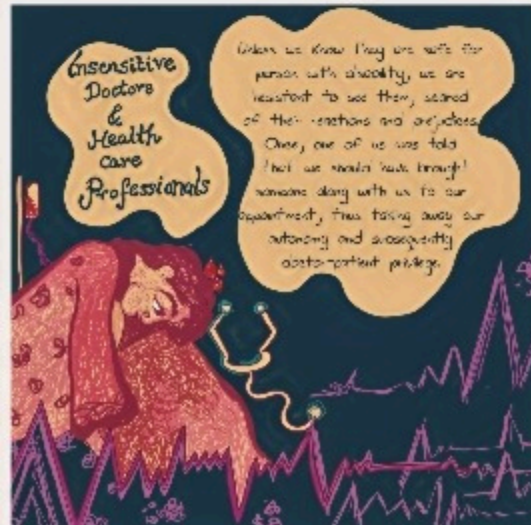 Insensitive
Doctors
&
Health
care
Professionals
Unless we know they are safe for
person with disability, we are
hesitant to see them, scared
of their reactions and prejudices.
Once, one of us was told
that we should have brought
someone along with us to our
appointment, thus taking away our
autonomy and subsequently
doctor-patient privilege.